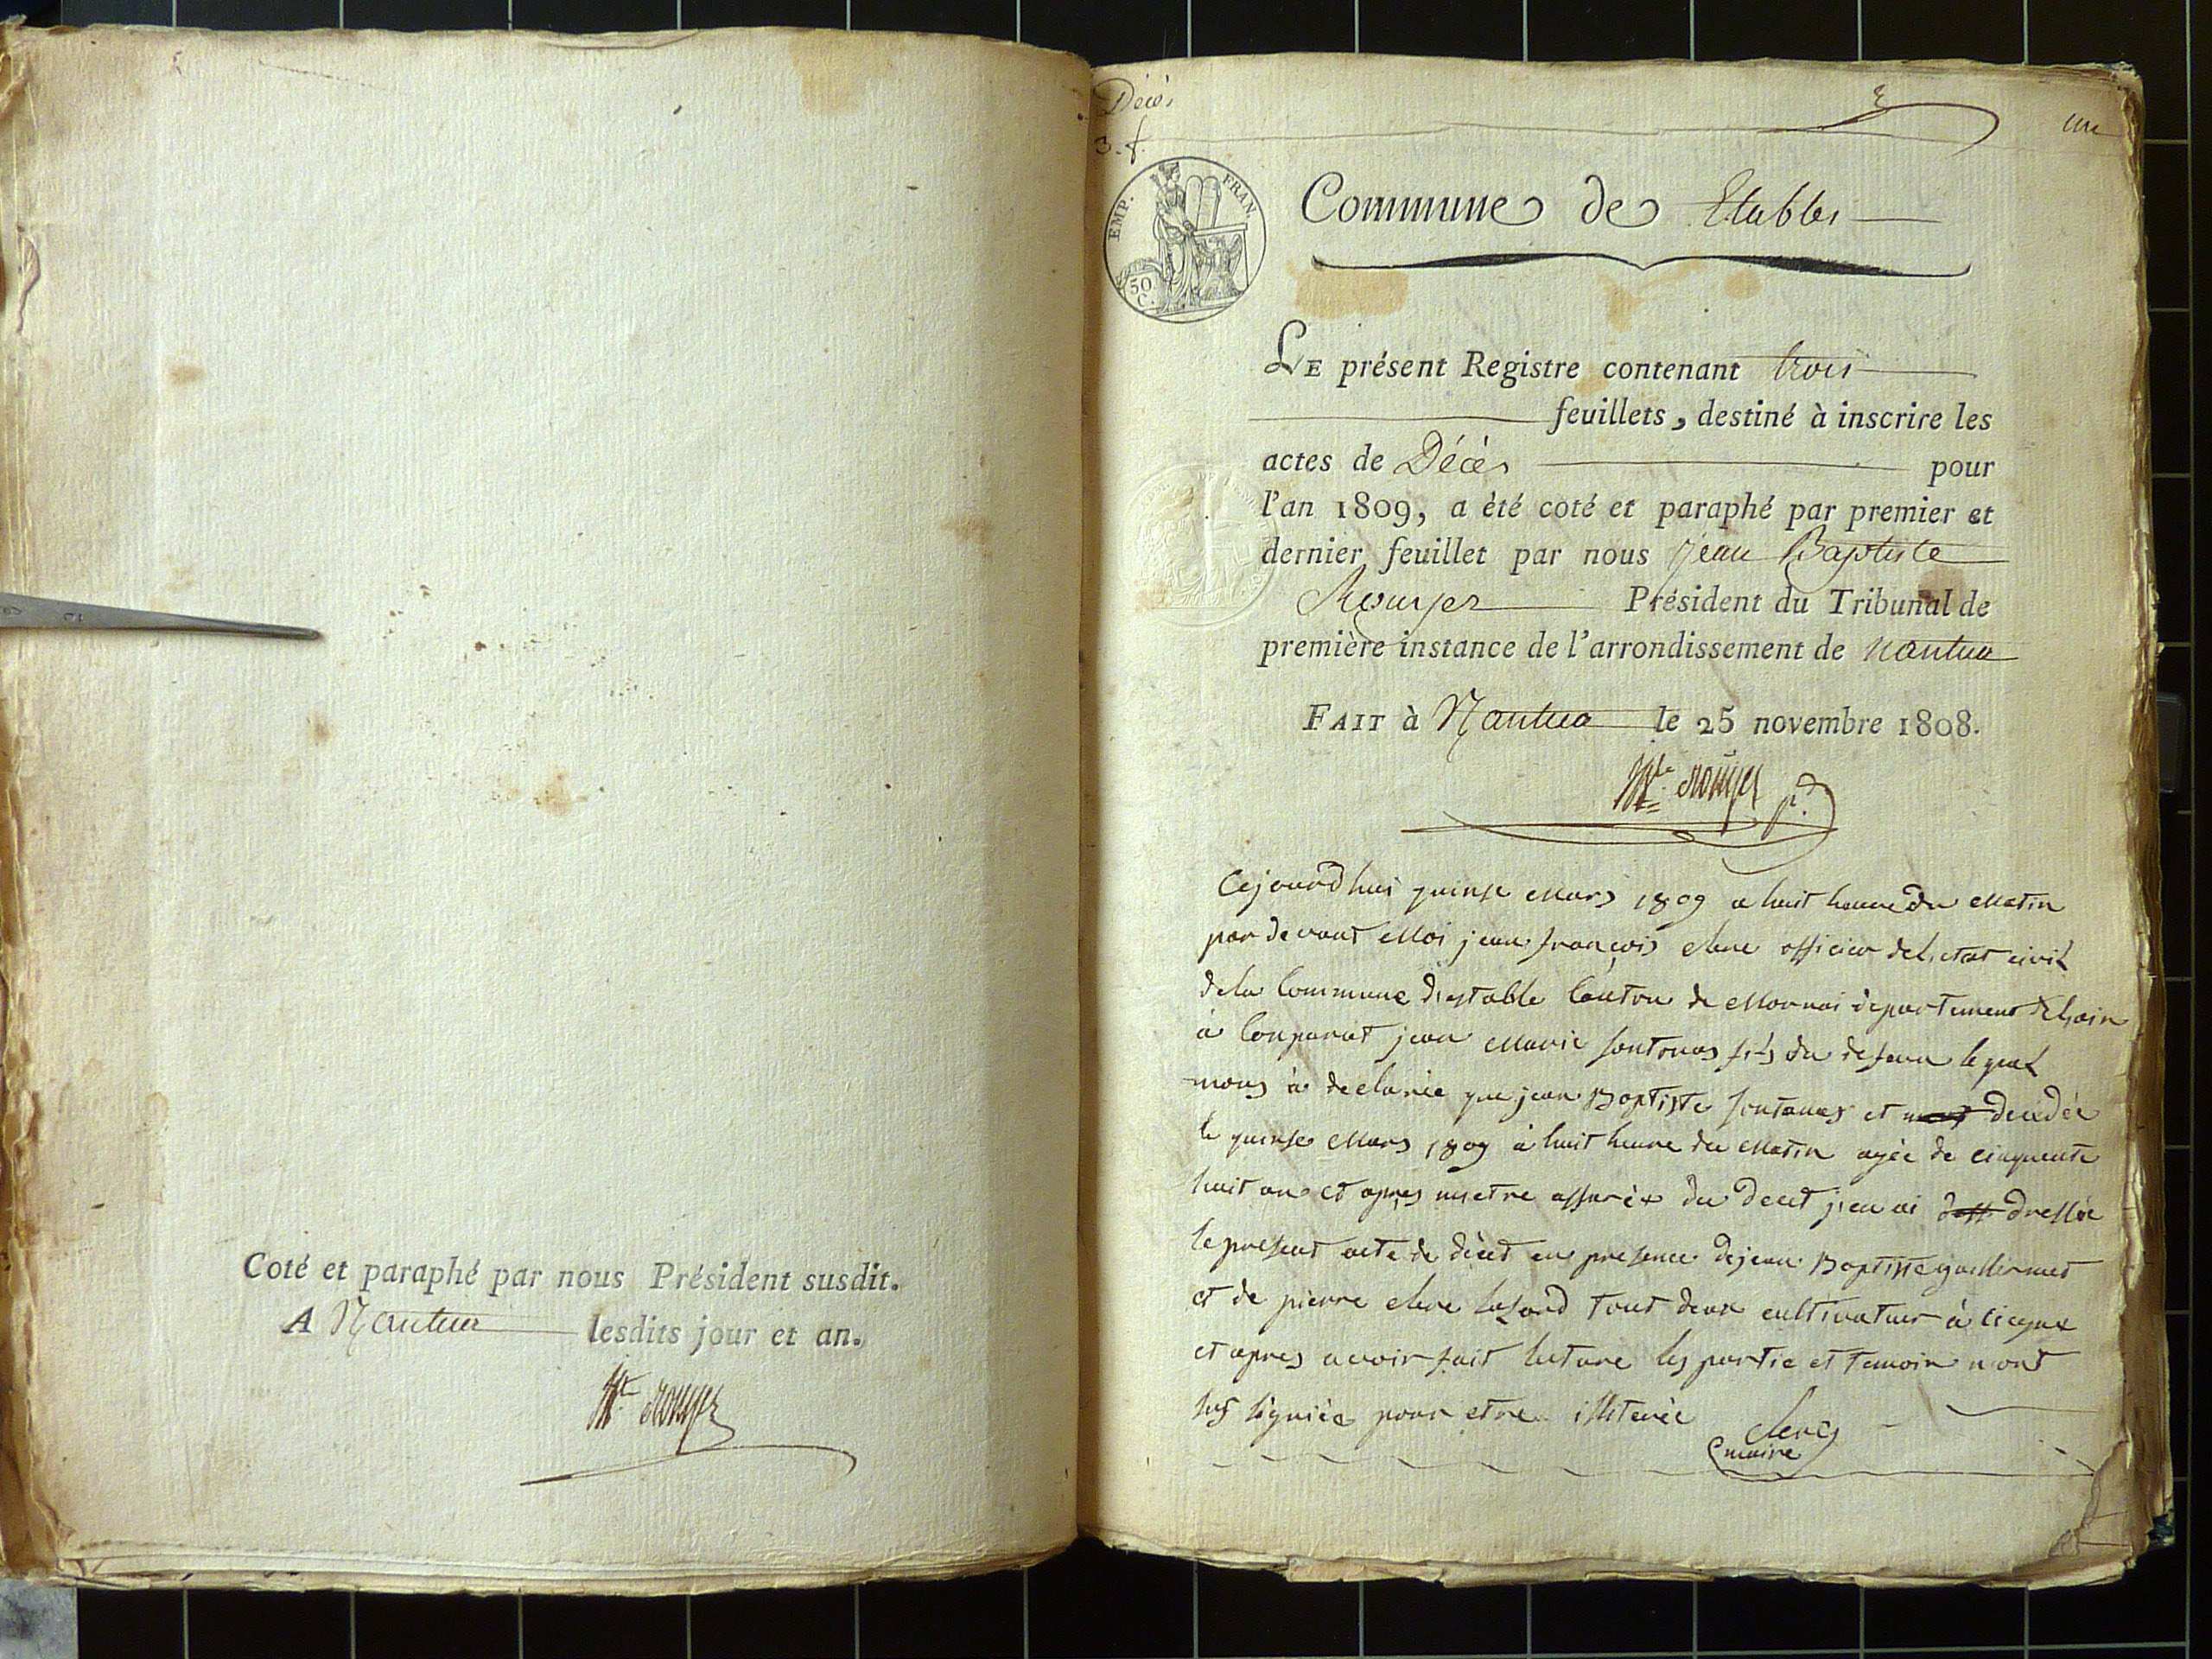 Coté et paraphé par nous Président susdit.
A Nantua lesdits jour et an.
Rouyer
Décès
3. f.
un
EMP. FRAN.
50
C.
Commune de Etables
LE présent Registre contenant trois
feuillets, destiné à inscrire les
actes de Décès pour
l'an 1809, a été coté et paraphé par premier et
dernier feuillet par nous Jean Baptiste
Rouyer Président du Tribunal de
première instance de l'arrondissement de nantua
FAIT à Nantua le 25 novembre 1808.
Rouyer pt.
Cejourdhui quinse Mars 1809 a huit heure du Matin
par devant Moi jean françois clerc officier del, etat civil
dela Commune d'estable Canton de Mornai departement de l,ain
à Conparut jean Marie fontanas fils du defunu lequel
nous à declarée que jean Baptiste fontanas et decédée
le quinse Mars 1809 à huit heure du Matin agée de cinquente
huit an et apres metre assurée du decet j,en ai dressée
le present acte de décet en presence dejean Baptiste guillermet
et de pierre clerc tout deux cultivatuer à
et apres avoir fait lecture les partie et temoin n ont
sus signiée pour etre illiterée
Clerc
maire